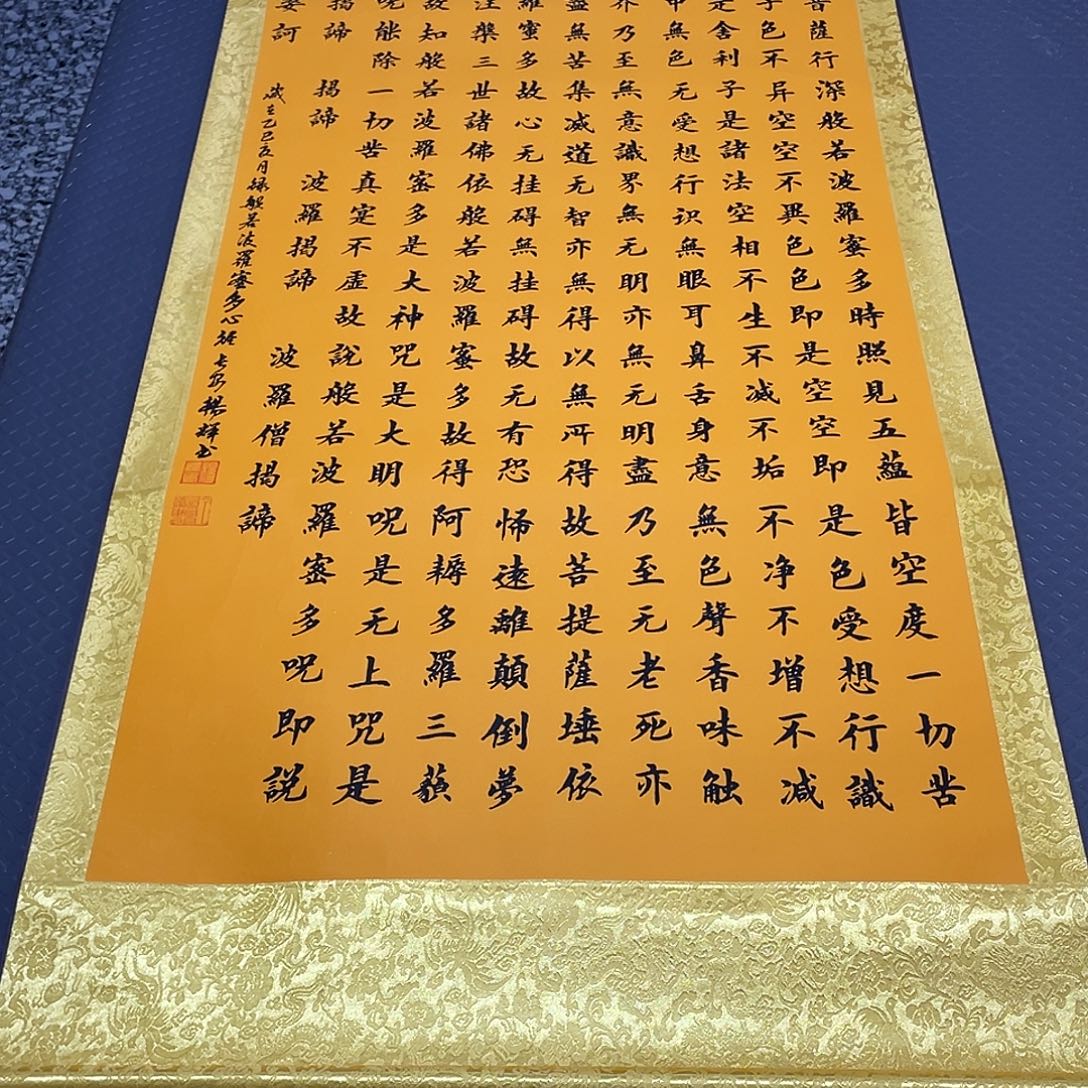 菩薩行深般若波羅蜜多時照見五蘊皆空度一切苦
子色不异空空不異色色即是空空即是色受想行識
是舍利子是諸法空相不生不滅不垢不净不增不减
中無色无受想行识無眼耳鼻舌身意無色聲香味触
界乃至無意識界無无明亦無无明盡乃至无老死亦
盡無苦集滅道无智亦無得以無所得故菩提薩埵依
羅蜜多故心无挂碍無挂碍故无有恐怖遠離顛倒夢
涅槃三世諸佛依般若波羅蜜多故得阿耨多羅三藐
故知般若波羅蜜多是大神咒是大明呪是无上咒是
呪能除一切苦真实不虛故說般若波羅蜜多呪即説
揭諦 揭諦 波羅揭諦 波羅僧揭諦
婆訶
歲在乙巳月録般若波羅蜜多心経長安楊輝书